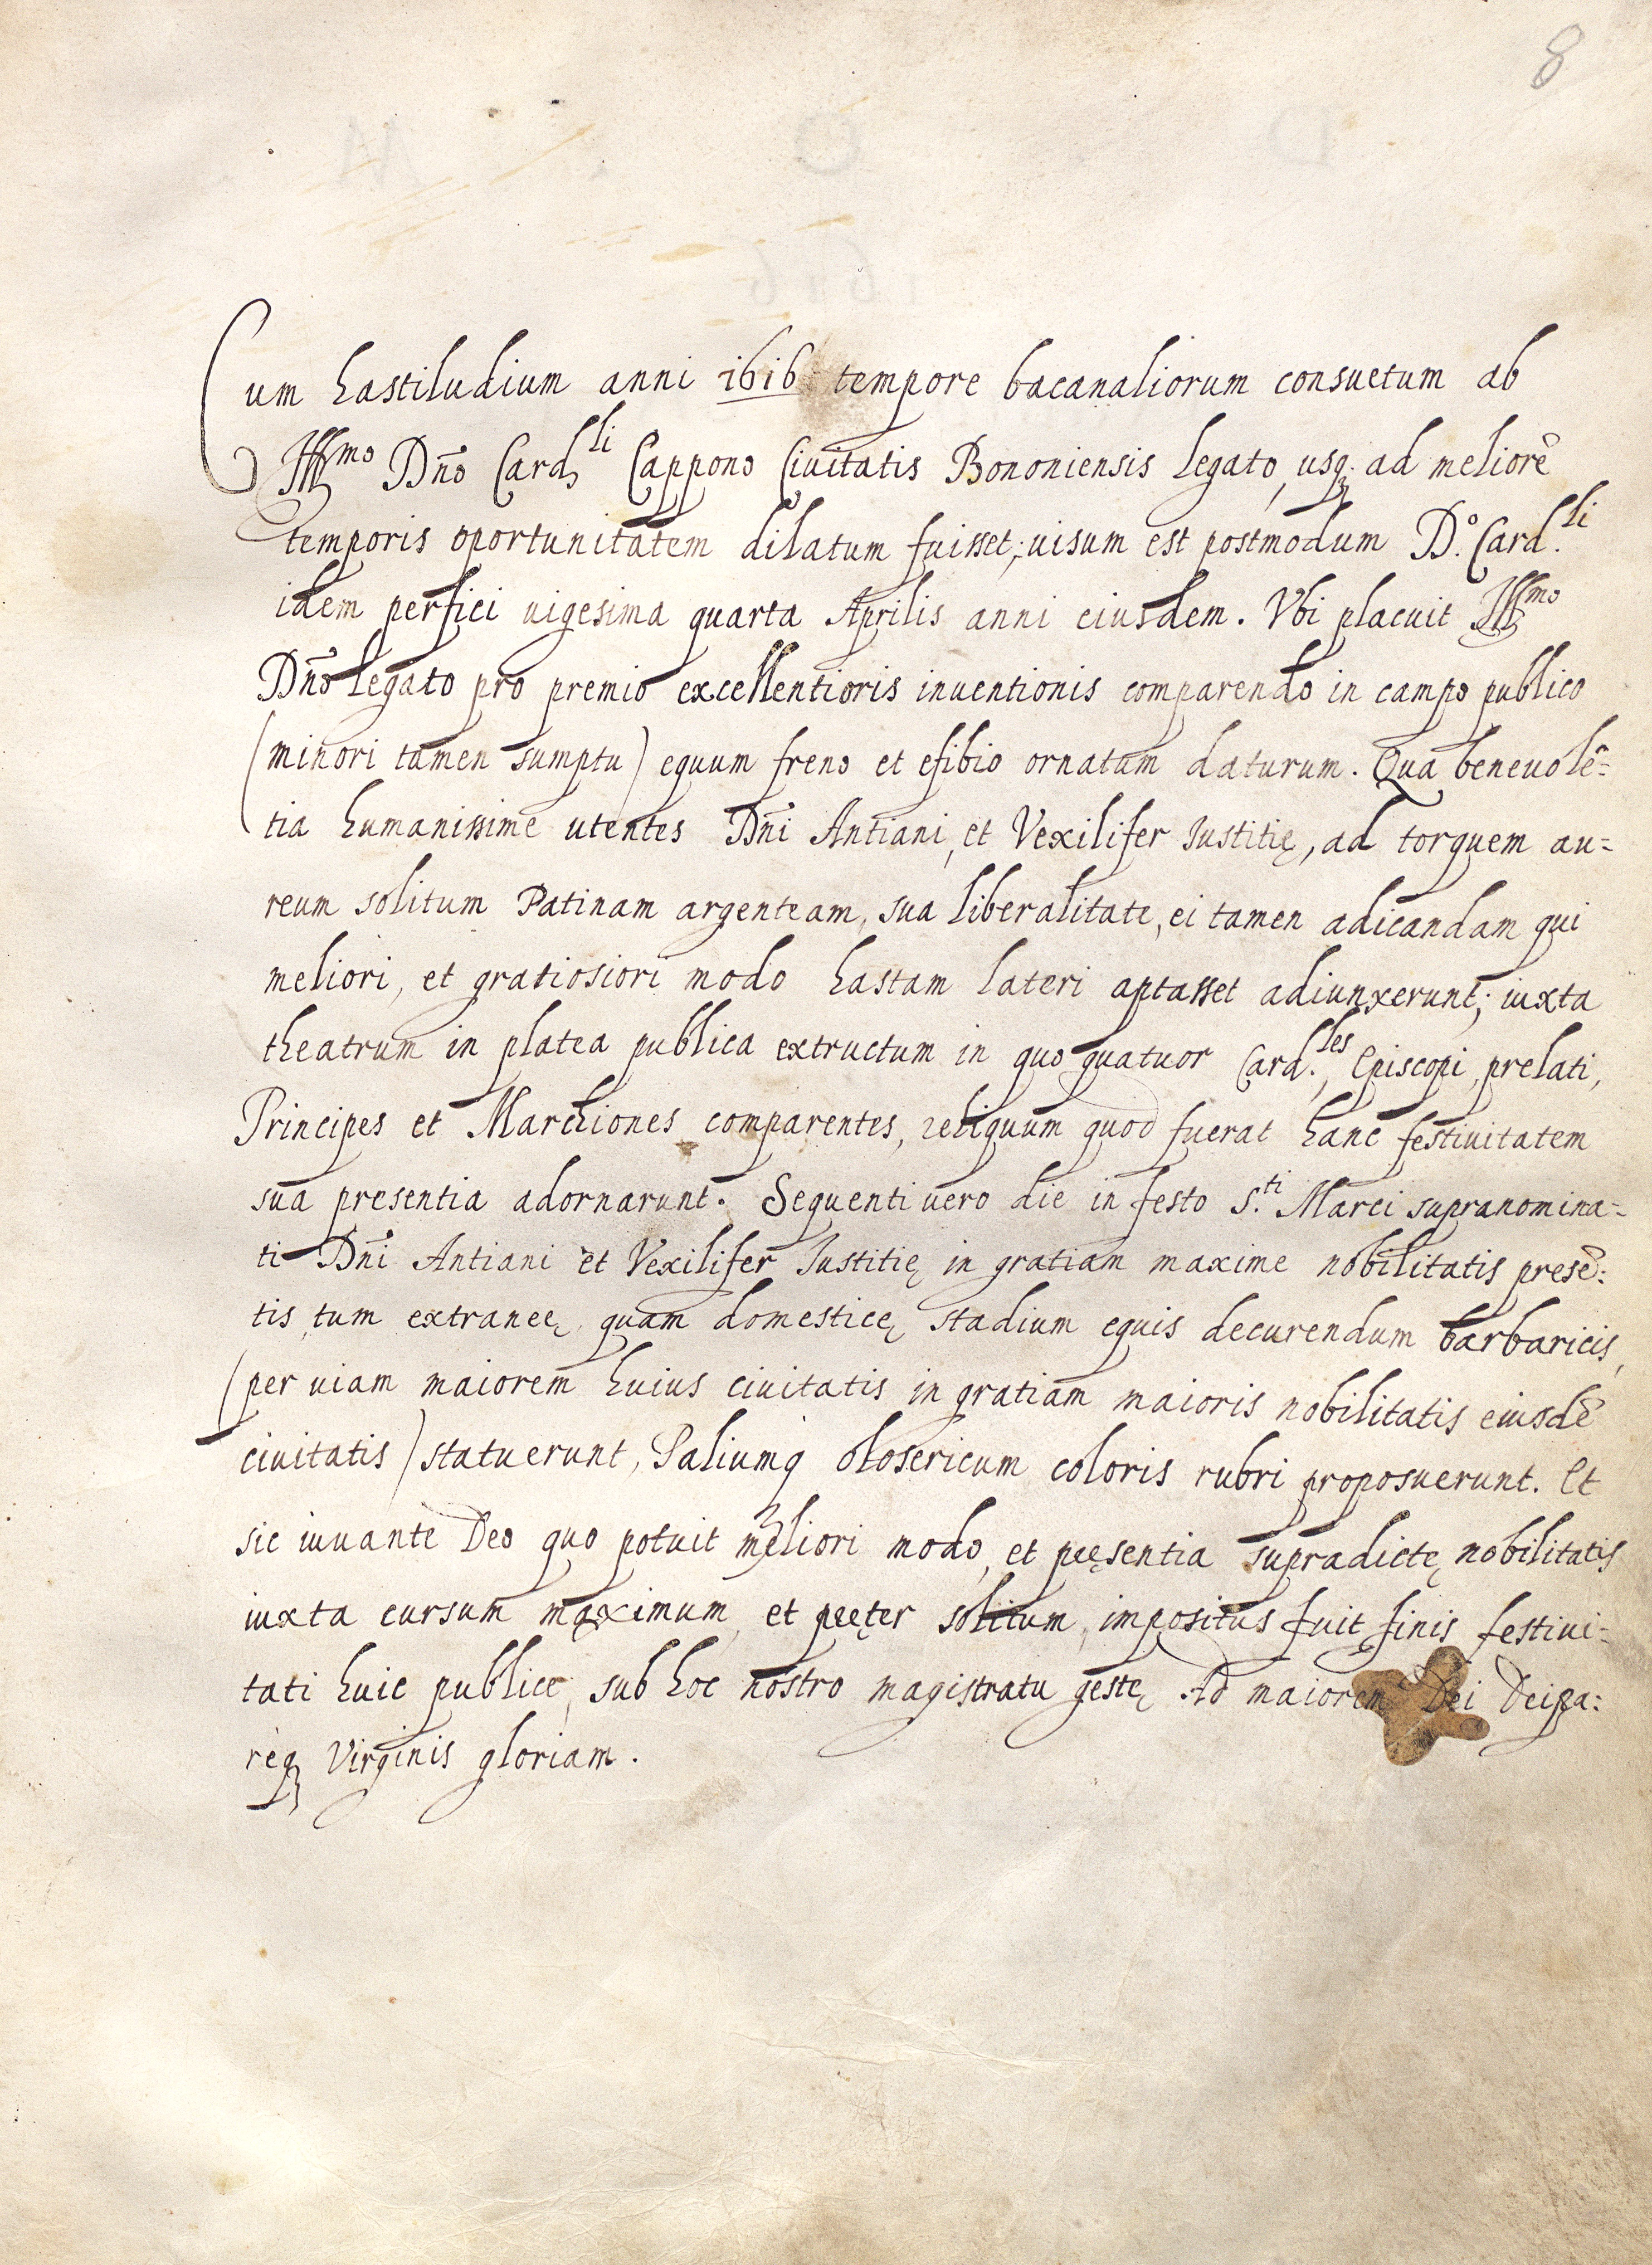 8
Cum hastiludium anni 1616 tempore bacanaliorum consuetum ab
Ill.mo Dño Card.li Cappono Ciuitatis Bononiensis Legato, usq; ad meliorē
temporis oportunitatem dilatum fuisset; uisum est postmodum D.º Card.li
idem perfici uigesima quarta Aprilis anni eiusdem. Vbi placuit Ill.mo
Dño Legato pro premio excellentioris inuentionis comparendo in campo publico
(minori tamen sumptu) equum freno et efibio ornatum daturum. Qua beneuolē=
tia humanissime utentes Dñi Antiani, et Vexilifer Iustitię, ad torquem au=
reum solitum Patinam argenteam, sua liberalitate, ei tamen adicandam qui
meliori, et gratiosiori modo hastam lateri aptasset adiunxerunt; iuxta
theatrum in platea publica extructum in quo quatuor Card.les, Episcopi, prelati,
Principes et Marchiones comparentes, reliquum quod fuerat hanc festiuitatem
sua presentia adornarunt. Sequenti uero die in festo S.ti Marci supranomina=
ti Dñi Antiani et Vexilifer Iustitię in gratiam maxime nobilitatis presē=
tis tum extraneę, quam domesticę stadium equis decurendum barbaricis,
(per uiam maiorem huius ciuitatis in gratiam maioris nobilitatis eiusdē
ciuitatis) statuerunt, Paliumq olosericum coloris rubri proposuerunt. Et
sic iuuante Deo quo potuit meliori modo, et pręsentia supradictę nobilitatis
iuxta cursum maximum, et pręter solitum, impositus fuit finis festiui=
tati huic publice, sub hoc nostro magistratu gestę Ad maiorem Dei Deipa=
req; Virginis gloriam.